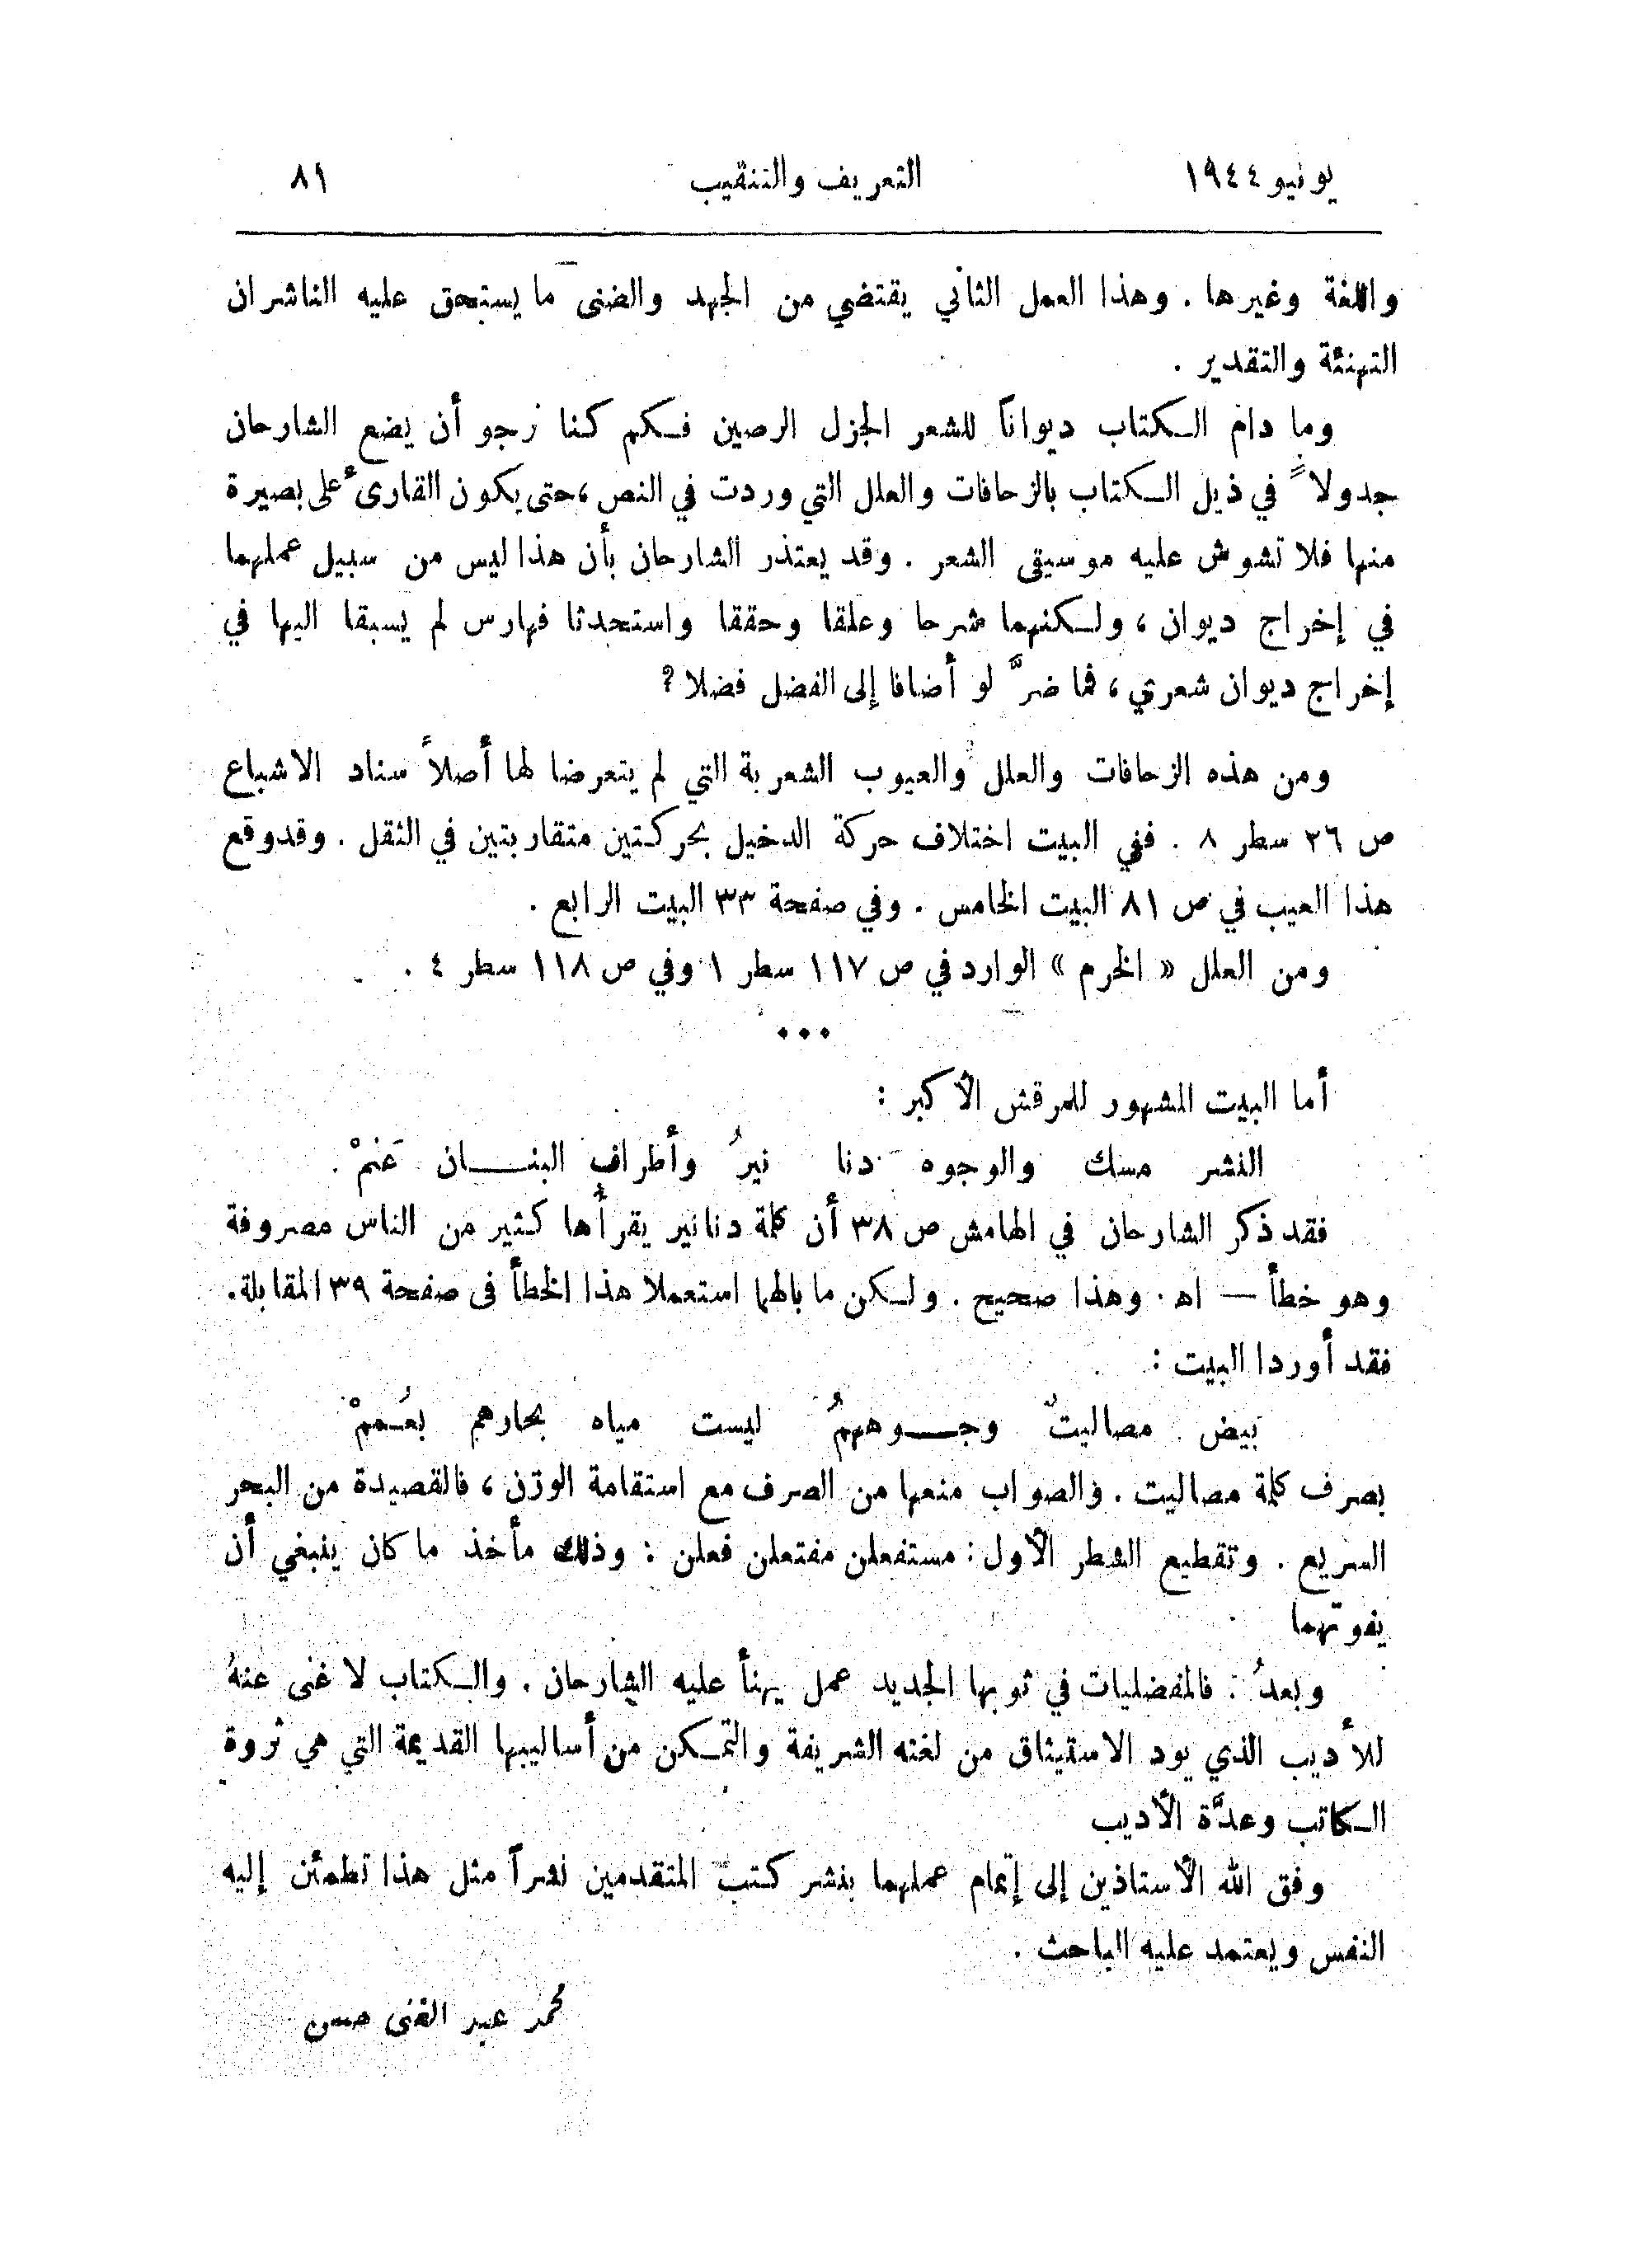 يونيو ١٩٤٤ التعريف والتنقيب ٨١
واللغة وغيرها . وهذا العمل الثاني يقتضي من الجهد والضنى ما يستحق عليه الناشران
التهنئة والتقدير .
وما دام الكتاب ديواناً للشعر الجزل الرصين فكم كنا نرجو أن يضع الشارحان
جدولاً في ذيل الكتاب بالزحافات والعلل التي وردت في النص ، حتى يكون القارىء على بصيرة
منها فلا تشوش عليه موسيقى الشعر . وقد يعتذر الشارحان بأن هذا ليس من سبيل عملهما
في إخراج ديوان ، ولكنهما شرحا وعلقا وحققا واستحدثا فهارس لم يسبقا اليها في
إخراج ديوان شعري ، فما ضرَّ لو أضافا إلى الفضل فضلا ؟
ومن هذه الزحافات والعلل والعيوب الشعرية التي لم يتعرضا لها أصلاً سناد الاشباع
ص ٢٦ سطر ٨ . ففي البيت اختلاف حركة الدخيل بحركتين متقاربتين في الثقل . وقد وقع
هذا العيب في ص ٨١ البيت الخامس . وفي صفحة ٣٣ البيت الرابع .
ومن العلل « الخرم » الوارد في ص ١١٧ سطر ١ وفي ص ١١٨ سطر ٤ .
•••
أما البيت المشهور للمرقش الأكبر :
النشر مسك والوجوه دنا نيرُ وأطراف البنـــان عَنمْ .
فقد ذكر الشارحان في الهامش ص ٣٨ أن كلمة دنانير يقرأها كثير من الناس مصروفة
وهو خطأ — اهـ . وهذا صحيح . ولكن ما بالهما استعملا هذا الخطأ فى صفحة ٣٩ المقابلة .
فقد أوردا البيت :
بيض مصاليتٌ وجـــوههمُ ليست مياه بحارهم بعُـممْ
بصرف كلمة مصاليت . والصواب منعها من الصرف مع استقامة الوزن ، فالقصيدة من البحر
السريع . وتقطيع الشطر الأول : مستفعلن مفتعلن فعلن : وذلك مأخذ ما كان ينبغي أن
يفوتهما
وبعدُ : فالمفضليات في ثوبها الجديد عمل يهنأ عليه الشارحان . والكتاب لا غنى عنهُ
للأديب الذي يود الاستيثاق من لغته الشريفة والتمكن من أساليبها القديمة التي هي ثروة
الكاتب وعدَّة الأديب
وفق الله الأستاذين إلى إتمام عملهما بنشر كتب المتقدمين نشراً مثل هذا تطمئن إليه
النفس ويعتمد عليه الباحث .
محمد عبد الغنى حسن